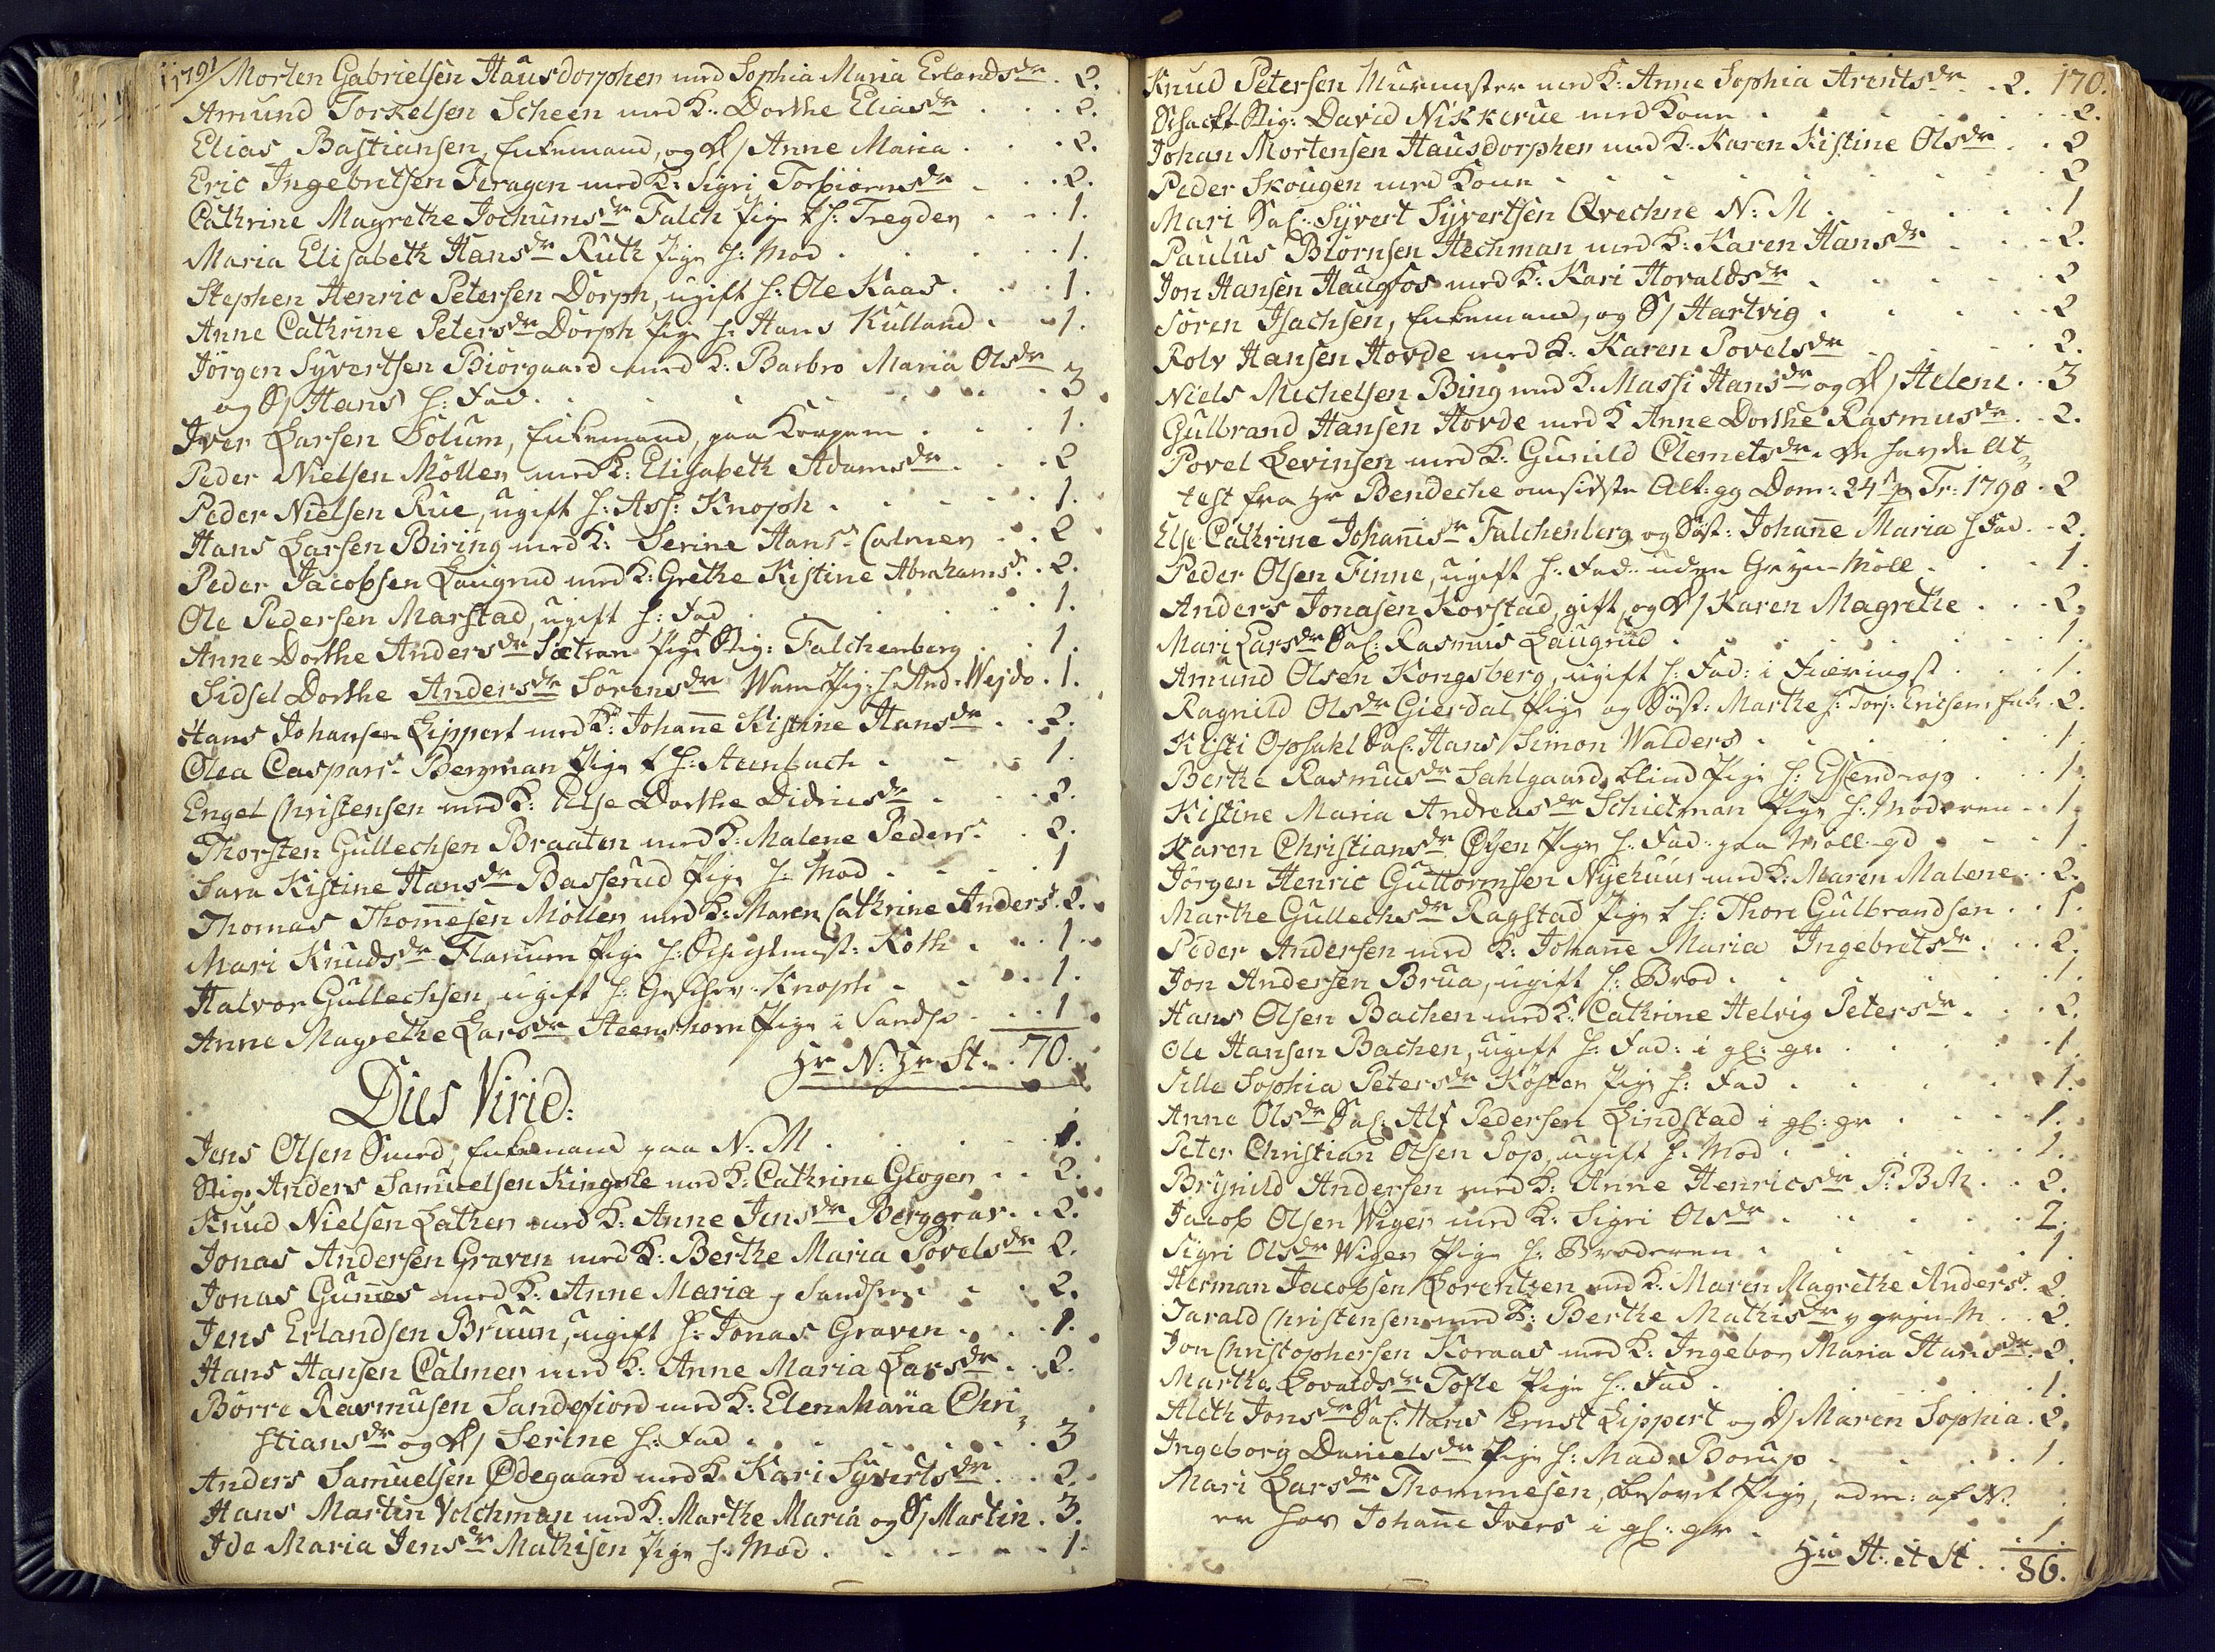 1791/ Morten Gabrielsen Hausdorphen med Sophia Maria Erlandsdr . 2.
Amund Torkelsen Scheen med K: Dorthe Eliasdr . . . 2.
Elias Bastiansen, Enkemand, og D/ Anne Maria . . . 2.
Eric Ingebretsen Teragen med K: Sigri Torbiörnsdr . . . 2.
Cathrine Magrethe Jochumsdr Falch Pige t h: Tregden . . . 1.
Maria Elisabeth Hansdr Ruth Pige h: Mod . . . 1.
Stephen Henric Petersen Dorph, ugift h: Ole Kaas . . . 1.
Anne Cathrine Petersdr Dorph Pige h: Hans Kulland . . 1.
Jörgen Syvertsen Biörgaard med K: Barbro Maria Olsdr
og S/ Hans h: Fad . . . 3
Iver Larsen Solum, Enkemand, paa . . . 1.
Peder Nielsen Möllen med K: Elisabeth Adamsdr . . . 2
Peder Nielsen Rue, ugift h: Ass: Knoph . . . 1.
Hans Larsen Biring med K: Serine Hans: Calmen . . 2
Peder Jacobsen Laugrud med K: Grethe Kistine Abrahams: . 2.
Ole Pedersen Marstad, ugift h: Fad . . . 1.
Anne Dorthe Andersdr Sætran Pige Stig: Falchenberg . . 1.
Sidsel Dorthe Andersdr Sörensdr Pig: h: And: Wejdo . 1.
Hans Johansen Lippert med K: Johane Kistine Hansdr . . 2.
Olea Caspars: Bergman Pige t h: Steenbach . . . 1.
Engel Christensen med K: Else Dorthe Didricsdr . . . 2.
Thorsten Gullechsen Braaten med K: Malene Peders: . 2.
Sara Kistine Hansdr Basserud Pige h: Mod . . . 1
Thomas Thomesen Möllen med K: Maren Cathrine Anders: 2.
Mari Knudsdr Flarum Pige h: Koth . . . 1.
Halvor Gullechsen, ugift h: Knoph . . . 1.
Anne Magrethe Larsdr Steenshorn Pige i Sands: . . . 1
Hr N: Hr St. . 70.
Dies Virid:
Jens Olsen Smed, Enkemand paa N: M . . . 1.
Stig: Anders Samuelsen Kingsle med K: Cathrine Glogen . . 2.
Knud Nielsen Lathen med K: Anne Jensdr Berggrav . . 2.
Jonas Andersen Graven med K: Berthe Maria Povelsdr 2.
Jonas Gumes med K: Anne Maria . . . 2.
Jens Erlandsen Bruun, ugift h: Jonas Graven . . . 1.
Hans Hansen Calmen med K: Anne Maria Larsdr . . 2.
Börre Rasmusen Sandefiord med K: Elen Maria Chri
stiansdr og D/ Serine h: Fad . . . 3
Anders Samuelsen Ødegaard med K: Kari Syvertsdr . . 2.
Hans Martin Volchman med K: Marthe Maria og S/ Martin . 3.
Ide Maria Jensdr Mathisen Pige h: Mod . . . 1.
Knud Petersen Murmester med K: Anne Sophia Arentsdr . 2. 170.
Schacht Stig: David Nikkerue med Kone . . . 2.
Johan Mortensen Hausdorphen med K: Karen Kistine Olsdr . . 2
Peder Skougen med Kone . . . 2
Mari Sal: Syvert Syvertsen Qvechne N: M . . . 1
Paulus Biörnsen Hechman med K: Karen Hansdr . . . 2.
Jon Hansen Haugfos med K: Kari Hovaldsdr . . . 2
Sören Isachsen, Enkemand, og S/ Hartvig . . . 2
Rolv Hansen Hovde med K: Karen Povelsdr . . . 2.
Niels Michelsen Bing med K: Massi Hansdr og D/ Helene . . 3
Gulbrand Hansen Hovde med K Anne Dorthe Rasmusdr . . 2.
Povel Levinsen med K: Gunild Clemetsdr. de havde At
test fra Hr Bendeche om sidste Alt:gg Dom: 24 p Tr: 1790 . 2
Else Cathrine Johanisdr Falchenberg og Söst: Johane Maria h Fad . . 2.
Peder Olsen Finne, ugift h: Fad: Möll . . . 1.
Anders Jonasen Korstad, gift, og D/ Karen Magrethe . . . 2.
Mari Larsdr Sal: Rasmus Laugrud . . . 1.
Amund Olsen Kongsberg, ugift h: Fad: i . . . 1.
Ragnild Olsdr Gierdal Pige og Söst: Marthe h: Torj: Ericsens Enke . 2.
Kisti Opsahl Sal: Hans Simon Walders . . . 1.
Berthe Rasmusdr Sahlgaard, blind Pige h: Essendrop . . . 1.
Kistine Maria Andreasdr Schietman Pige h: Moderen . . 1.
Karen Christiansdr Öyen Pige h: Fad: paa . . . 1.
Jörgen Henric Guttormsen Nyehuus med K: Maren Malene . . 2.
Marthe Gullechsdr Ragstad Pige t h: Thore Gulbrandsen . . 1.
Peder Andersen med K: Johane Maria Ingebretsdr . . . 2.
Jon Andersen Brua, ugift h: Brod . . . 1.
Hans Olsen Bachen med K: Cathrine Helvig Petersdr . . . 2.
Ole Hansen Bachen, ugift h: Fad: i gl: gr . . . 1.
Sille Sophia Petersdr Kösten Pige h: Fad . . . 1.
Anne Olsdr Sal: Alf Pedersen Lindstad i gl: gr . . . 1.
Peter Christian Olsen Sop, ugift h: Mod . . . 1.
Brynild Andersen med K: Anne Henricsdr P: B M . . 2.
Jacob Olsen Wigen med K: Sigri Olsdr . . . 2.
Sigri Olsdr Wigen Pige h: Broderen . . . 1.
Herman Jacobsen Lorentzen med K: Maren Magrethe Anders: 2.
Tarald Christensen med K: Berthe Mathisdr . . 2.
Jon Christophersen Koraas med K: Ingebor Maria Hansdr . 2.
Marthe Lovaldsdr Tofte Pige h: Fad . . . 1.
Aleth Jonsdr Sal: Hans Ernst Lippert og D/ Maren Sophia . 2.
Ingeborg Danielsdr Pige h: Mad. Borup . . . 1.
Mari Larsdr Thommesen, besovet Pige, adm: af N:
er hos Johane Ivers i gl: gr . . . 1.
Hic St: et St . . . 86.